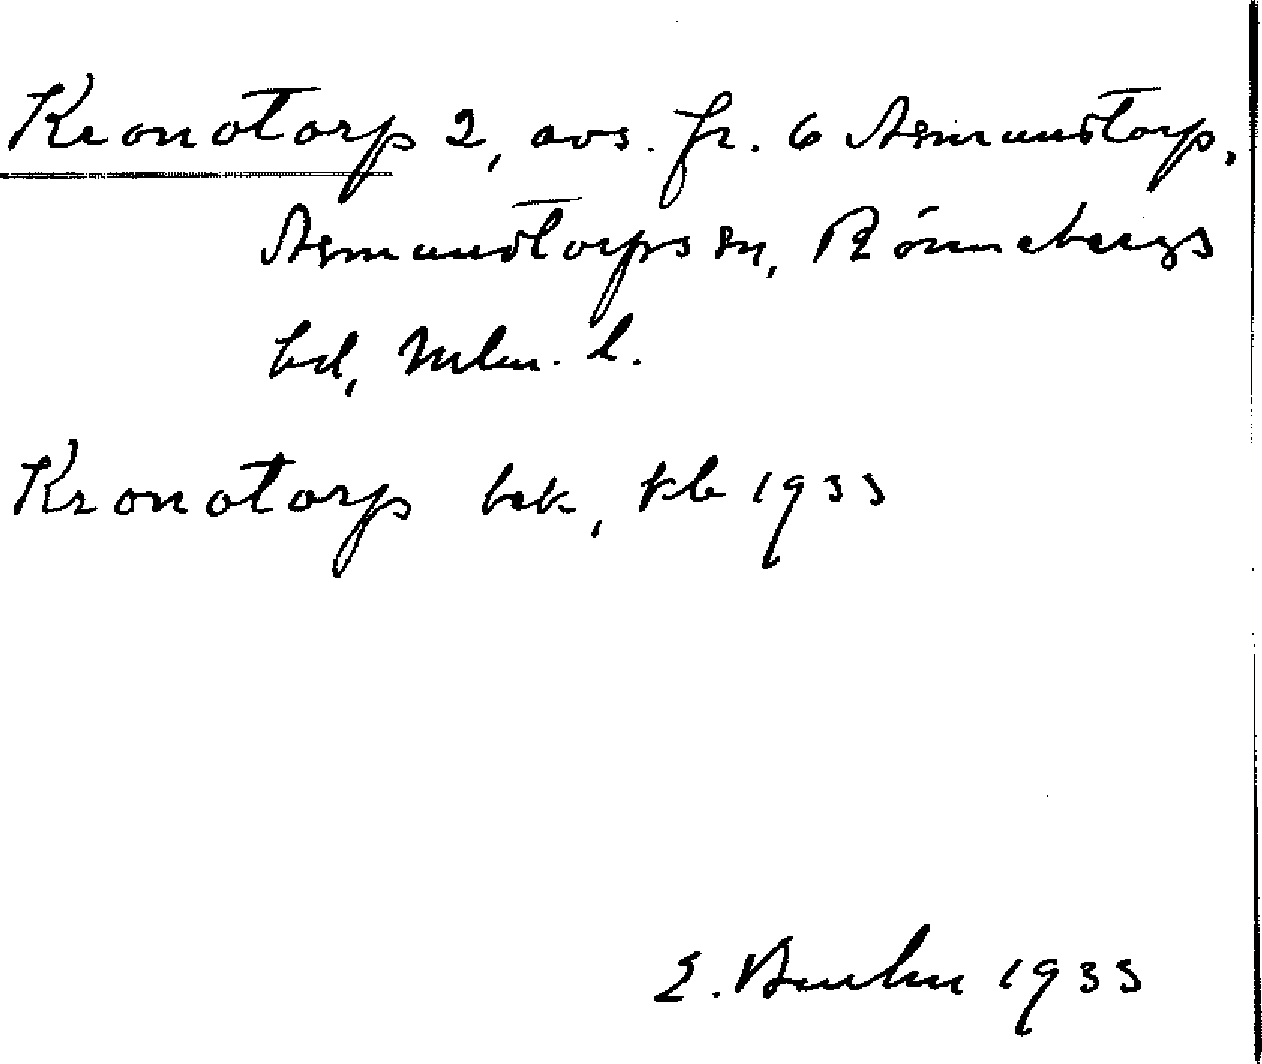 Kronotorp 2, avs. fr. 6 Asmundtorp,
Asmundtorps sn, Rönnebergs
hd, Mlm. l.
Kronotorp bek, kb 1933
E. 1933